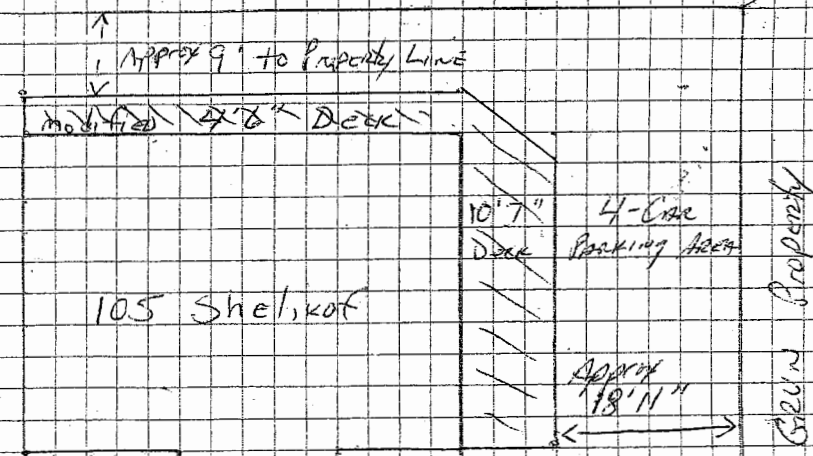 Approx 9' to Property Line
Modified 4'6" Deck
10'7"
Deck
4-Car
Parking Area
105 Shelikof
Approx
18'11"
Property